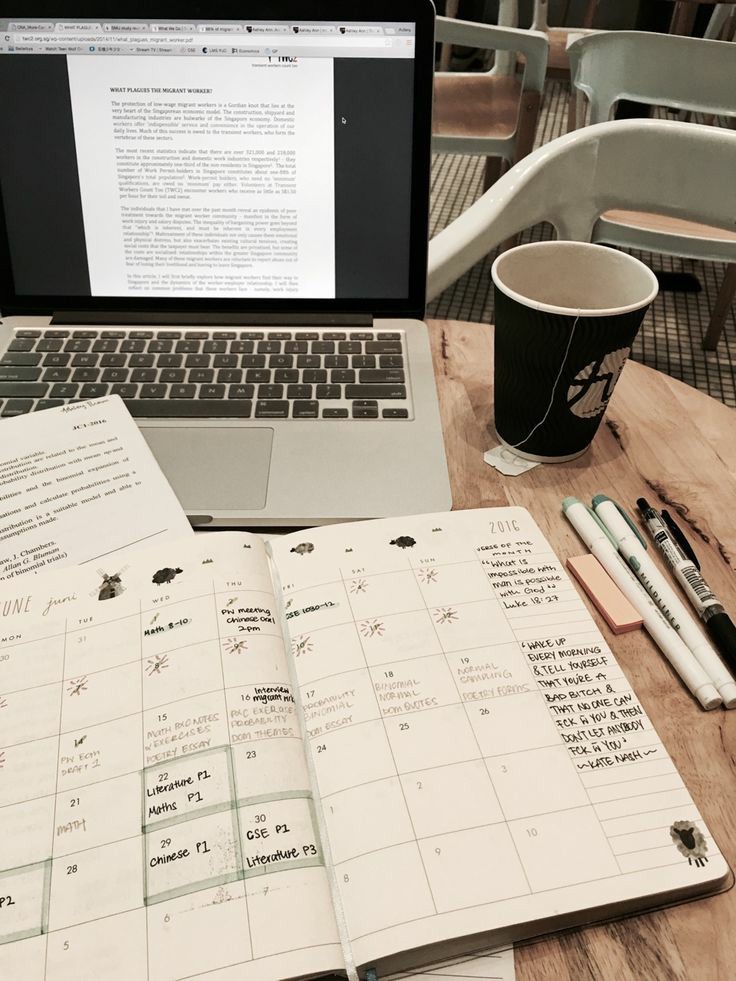 twc2.org.sg/wp-content/uploads/2014/11/what_plagues_migrant_worker.pdf
TWC2
transient workers count too
WHAT PLAGUES THE MIGRANT WORKER?
The protection of low-wage migrant workers is a Gordian knot that lies at the
very heart of the Singaporean economic model. The construction, shipyard and
manufacturing industries are bulwarks of the Singapore economy. Domestic
workers offer indispensible service and convenience in the operation of our
daily lives. Much of this success is owed to the transient workers, who form the
vertebrae of these sectors.
The most recent statistics indicate that there are over 321,000 and 218,000
workers in the construction and domestic work industries respectively
they
constitute approximately one-third of the non residents in Singapore
The total
number of Work Permit-holders in Singapore constitutes about
of
Singapore's total population
Work-permit holders, who need no 'minimum'
qualifications, are owed no 'minimum' pay either. Volunteers at Transient
Workers Count Too (TWC2) encounter workers who receive as little as S$1.50
per hour for their toil and sweat.
The individuals that I have met over the past month reveal an epidemic of poor
treatment towards the migrant worker community – manifest in the form of
work injury and salary disputes. The inequality of bargaining power goes beyond
that "which is inherent, and must be inherent in every employment
relationship". Maltreatment of these individuals not only causes them emotional
and physical distress, but also exacerbates existing cultural tensions, creating
social costs that the taxpayer must bear. The benefits are privatised, but some of
the costs are socialised: relationships within the greater Singapore community
are damaged. Many of these migrant workers are reluctant to report abuse out of
fear of losing their livelihood and having to leave Singapore.
In this article, I will first briefly explore how migrant workers find their way to
Singapore and the dynamics of the worker-employer relationship. I will then
reflect on common problems that these workers face – namely, work injury
JC1-2016
omial variable.
tribution are related to the mean and
distribution.
bability distribution with mean np and
bilities and the binomial expansion of
ations and calculate probabilities using a
stribution is a suitable model and able to
ssumptions made.
aw, J. Chambers.
Allan G. Bluman
n of binomial trials)
UNE juni
2016
MON TUE WED THU FRI SAT SUN
30 31
Math 8-10
PW meeting
Chinese Oral
2pm
GSE 1030-12
14
PW EOM
DRAFT 1
15
MATH
NOTES
& EXERCISES
POETRY ESSAY
16
Interview
migrant
EXERCISE
PROBABILITY
DOM THEMES
17
PROBABILITY
BINOMIAL
DOM ESSAY
18
BINOMIAL
NORMAL
DOM QUOTES
19
NORMAL
SAMPLING
POETRY FORMS
21
MATH
22
Literature P1
Maths P1
23 24 25 26
28
29
Chinese P1
30
GSE P1
Literature P3
1 2 3
P2
5 6 7 8 9 10
VERSE OF THE
MONTH
"What is
impossible with
man is possible
with God"
Luke 18:27
'WAKE UP
EVERY MORNING
& TELL YOURSELF
THAT YOU'RE A
BAD BITCH &
THAT NO ONE CAN
FCK
YOU & THEN
DON'T LET ANYBODY
FCK
YOU'
~KATE NASH~
MILDLINER